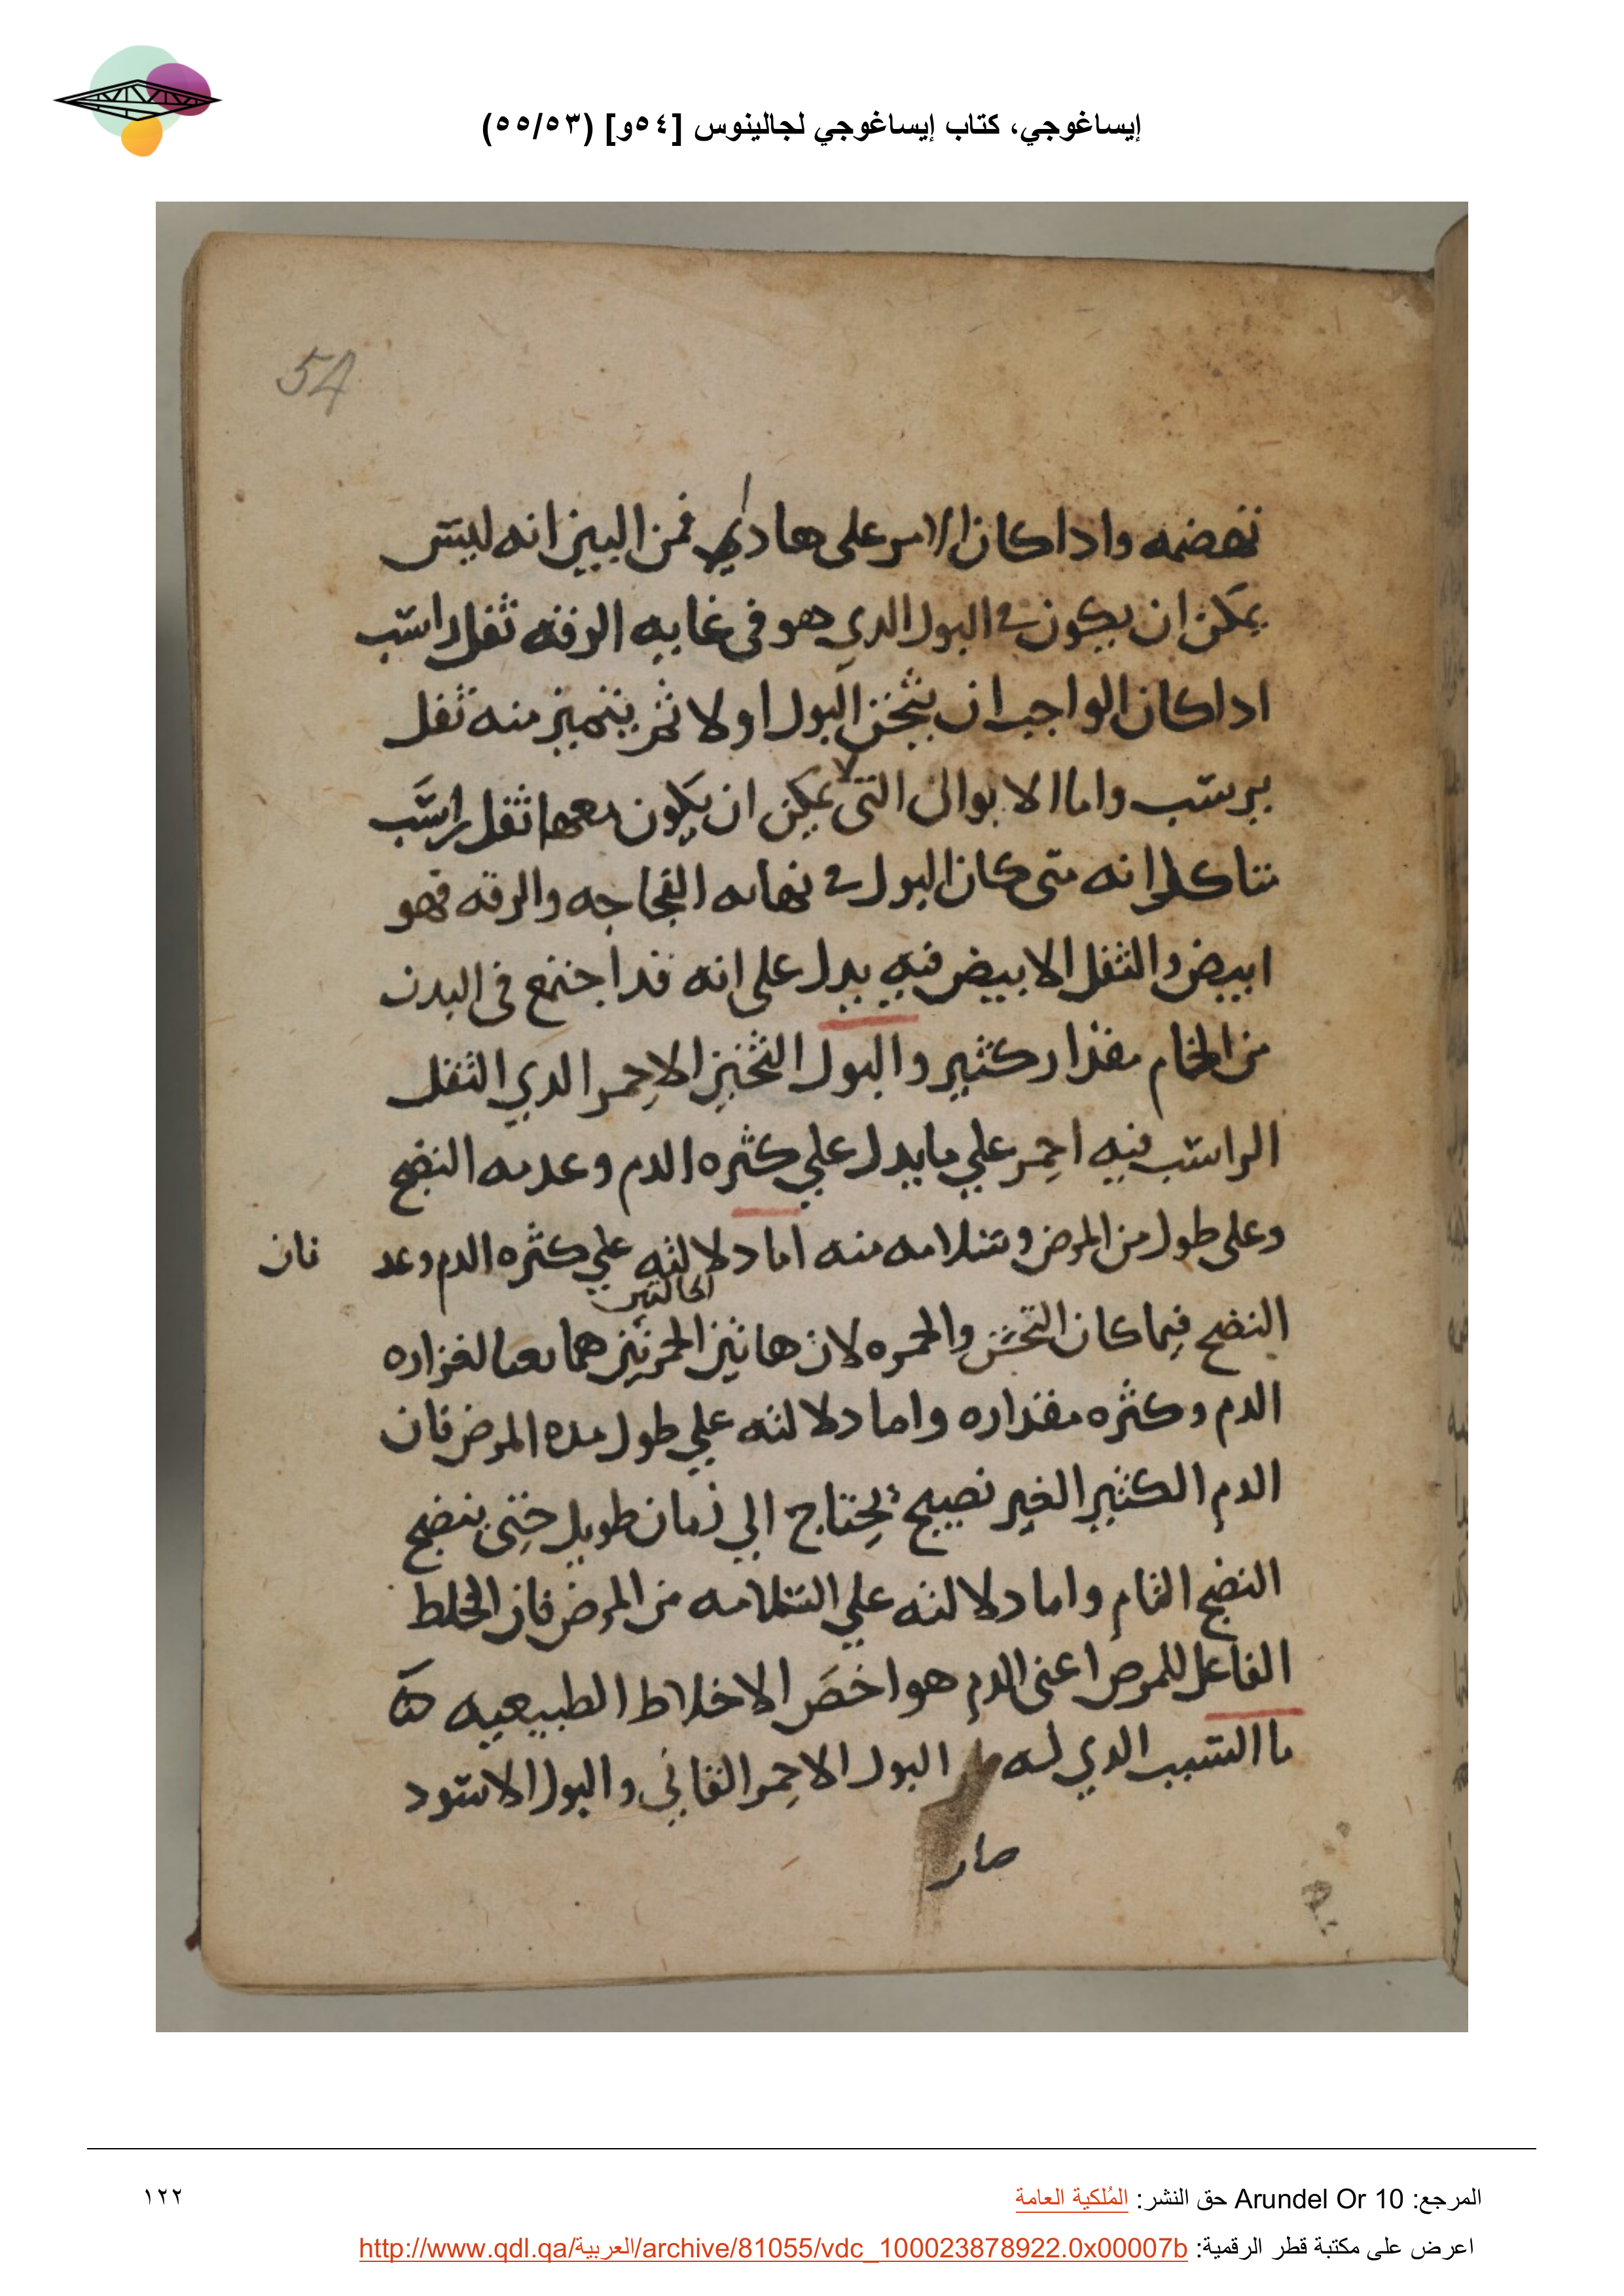 إيساغوجي، كتاب إيساغوجي لجالينوس [٥٤و] (٥٥/٥٣)
54
نهضمه وادا كان الامر على هادي فمن البين انه ليس
يمكن ان يكون في البول الدي هو في غايه الرقه ثفل راسب
ادا كان الواجب ان يثخن البول اولا ثم يتميز منه ثفل
يرسب واما الابوال التي لا يمكن ان يكون معها ثفل راسب
انه متى كان البول في نهايه الفجاجه والرقه فهو
ابيض والثفل الابيض فيه يدل على انه قد اجتمع في البدن
من الخام مقدار كثير والبول الثخين الاحمر الدي الثفل
الراسب فيه احمر علي ما يدل علي كثره الدم وعدمه النضج
وعلى طول من المرض وسلامه منه اما دلالته علي كثره الدم وعد
فان
الحالتين
النضج فيما كان الثخن والحمره لان هاتين الحمرتين هما لغزاره
الدم وكثره مقداره واما دلالته علي طول مده المرض فان
الدم الكثير الغير نضيج يحتاج الي زمان طويل حتى ينضج
النضج التام واما دلالته علي السلامه من المرض فان الخلط
الفاعل للمرض اعنى الدم هو اخص الاخلاط الطبيعيه
ما السبب الدي له البول الاحمر القاني والبول الاسود
صار
المرجع: Arundel Or 10 حق النشر: المُلكية العامة
١٢٢
اعرض على مكتبة قطر الرقمية: http://www.qdl.qa/العربية/archive/81055/vdc_100023878922.0x00007b